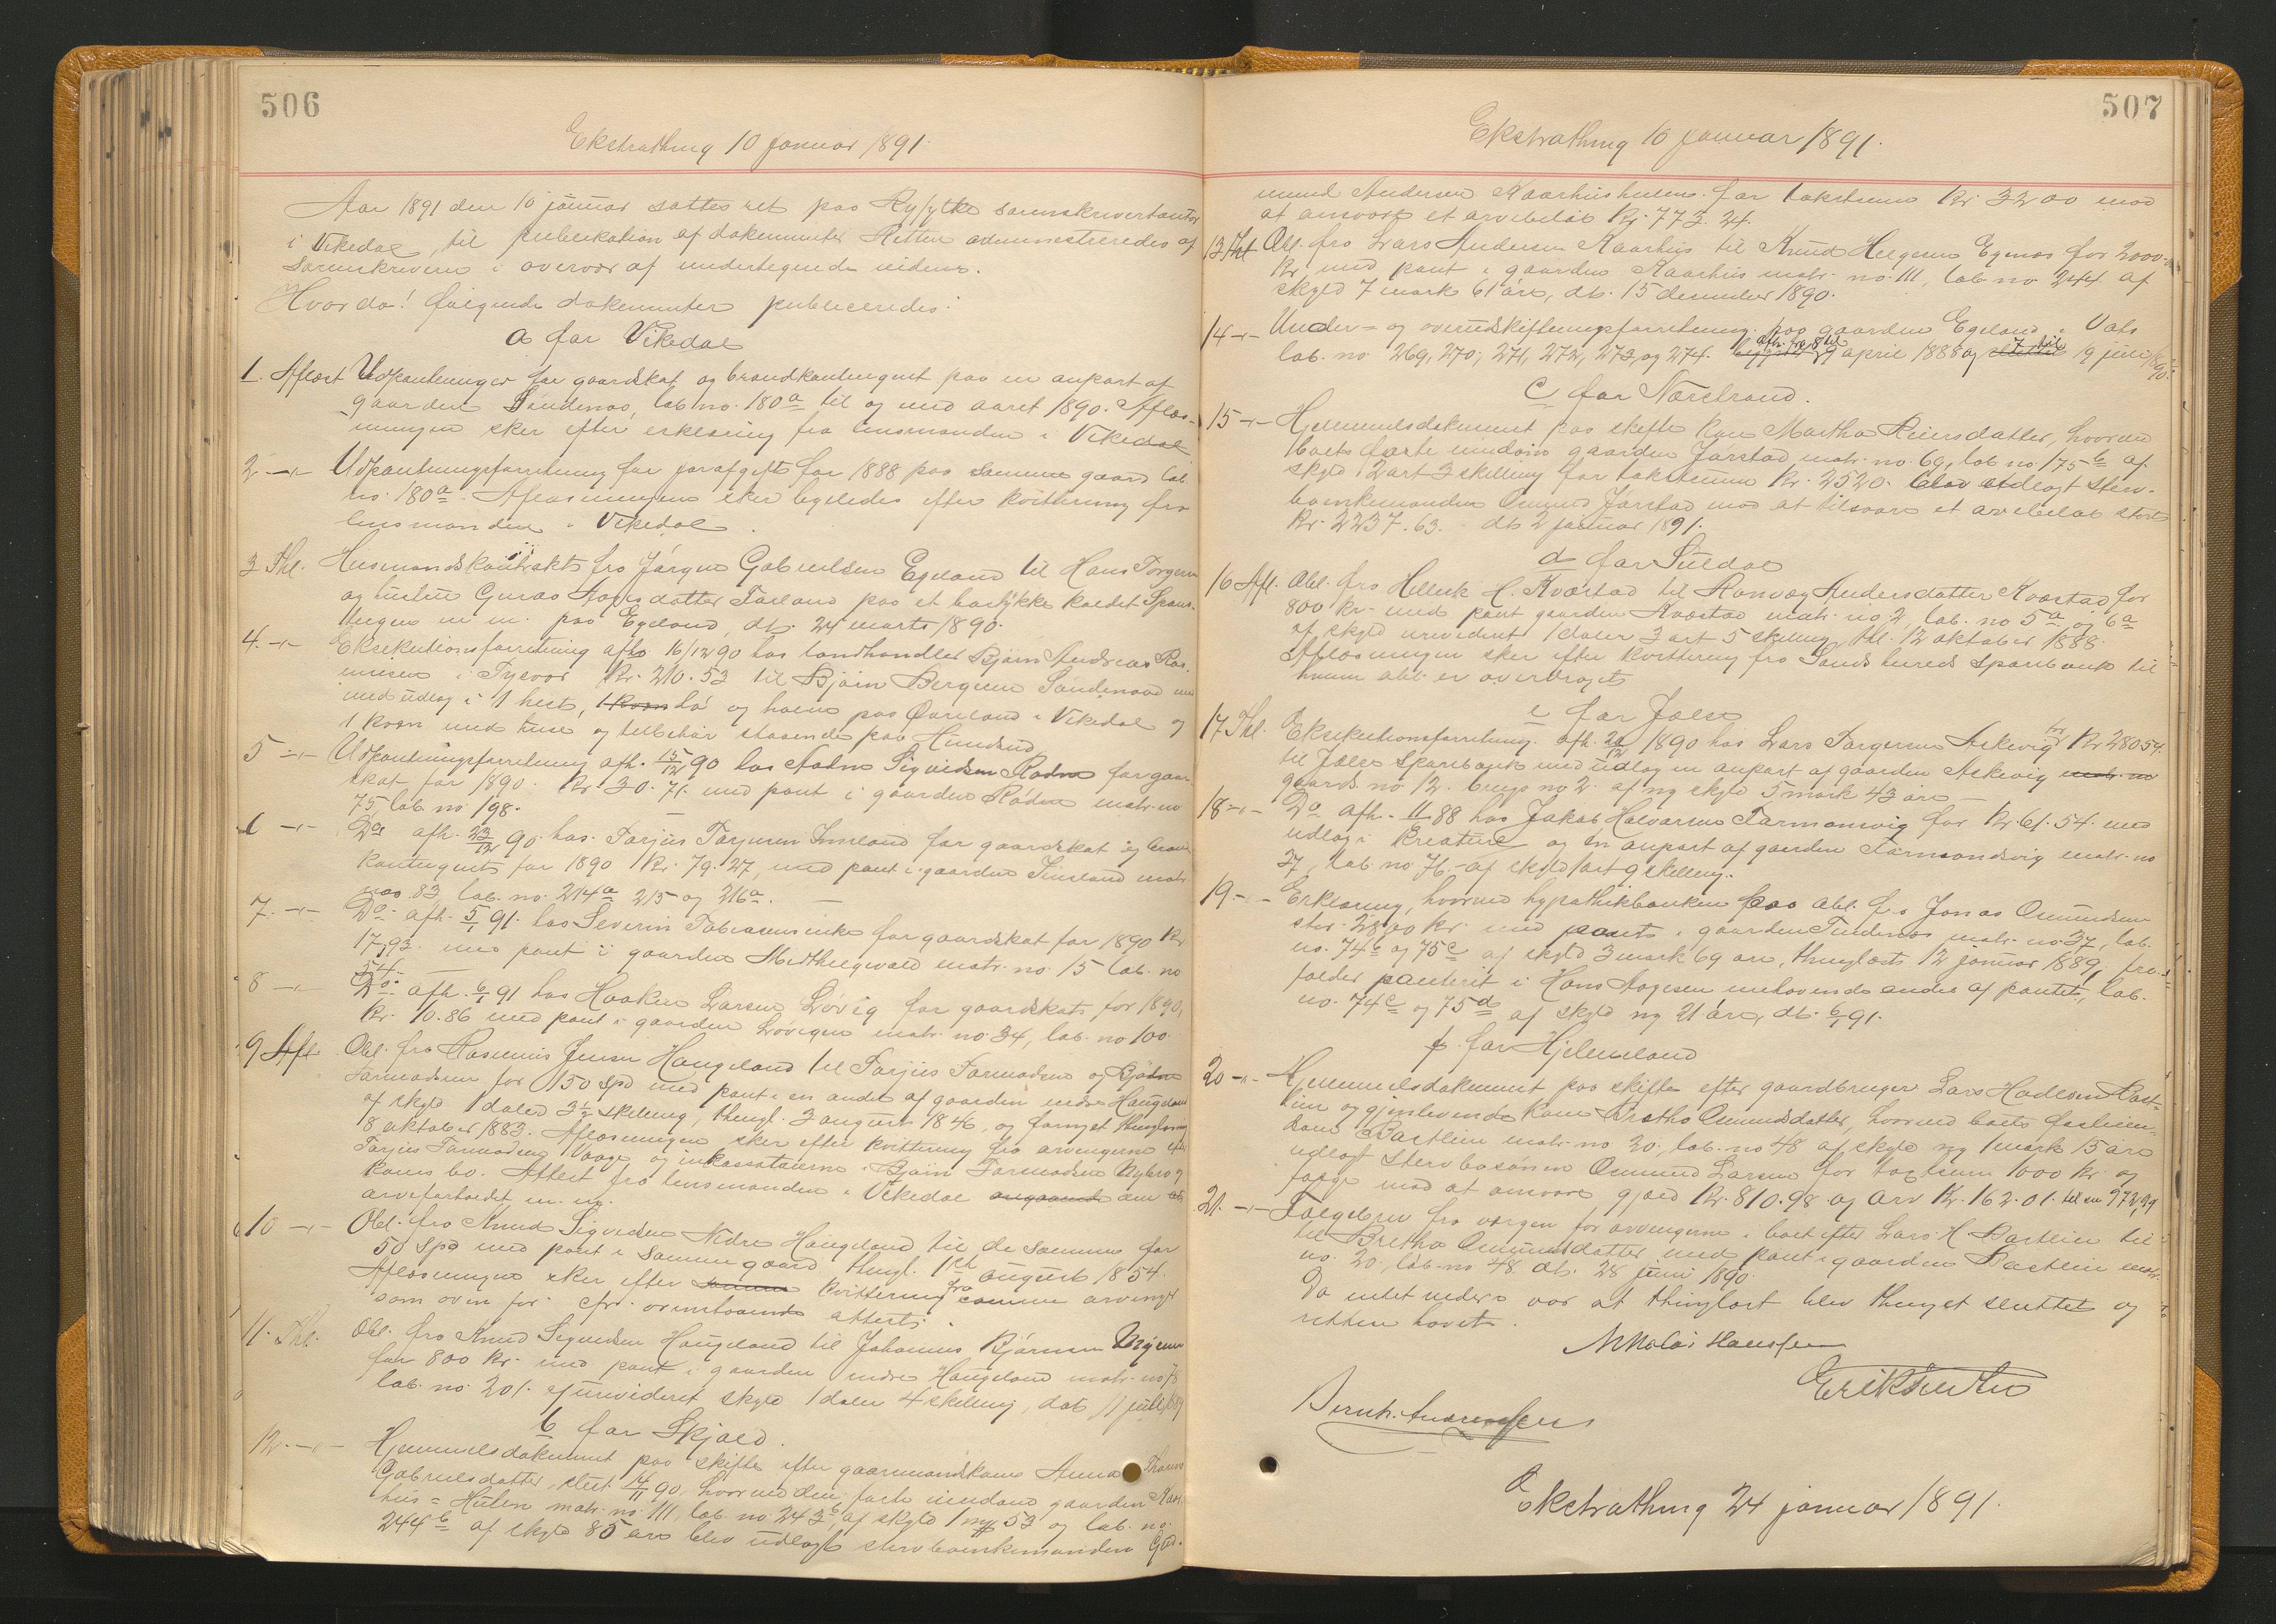 506
Ekstrathing 10 januar 1891.
Aar 1891 den 10 januar sattes ret paa Ryfylke sorenskriverkontor
i Vikedal, til publikation af dokumenter Retten administreredes af
Sorenskriveren i overvær af undertegnede vidner.
Hvorda! følgende dokumenter publiceredes:
a for Vikedal
1. Aflæst Udpantninger for gaardskat og brandkontingent paa en anpart af
gaarden Søndenaa, lab. no. 180a til og med aaret 1890. Aflæs-
ningen sker efter erklæring fra lensmanden i Vikedal
2 -"- Udpantningsforretning for jorafgift for 1888 paa samme gaard lab.
no. 180a. Aflæsningen sker ligeledes efter kvittering fra
lensmanden i Vikedal.
3 Thl. Husmandskontrakt fra Jørgen Gabrielsen Egeland til Hans Torgersen
og hustru Guraa Aagesdatter Farland paa et jordstykke kaldet Span-
tingen m. m. paa Egeland, dt. 24 marts 1890.
4. -"- Eksekutionsforretning afho. 16/12 90 hos landhandler Bjørn Andreas Ras-
mussen i Tysvær Kr. 210.53 til Bjørn Bergesen Søndenaa
med udlæg i 1 hest, 1 korn hø og halm paa Øvreland i Vikedal og
1 kværn med huse og tilbehør staaende paa Hundsnes
5 -"- Udpantningsforretning afh. 15/12 90 hos Aadne Sigvidsen Rødne for gaard-
skat for 1890. Kr. 30.71. med pant i gaarden Rødne matr. no
75 lab. no. 198.
6 -"- Do. afh. 23/12 90. hos Torjus Torjusen Imsland for gaardskat og brand
kontingent for 1890 Kr. 79.27, med pant i gaarden Imsland matr.
no. 83, lab. no. 214a 215 og 216a.
7. -"- Do. afh. 5/1 91. hos Severin Tobiasens enke for gaardskat for 1890 Kr
17.93. med pant i gaarden Medhusvald matr. no. 15 lab. no
54.
8 -"- Do. afh. 6/1 91 hos Haaken Larsen Løvig for gaardskat for 1890,
Kr. 10.86 med pant i gaarden Løvigen matr. no 34, lab. no 100.
9 Afl. Obl. fra Rasmus Jensen Haugeland til Torjus Tormodsen og Bjørn
Tormodsen for 150 Spd med pant i en andel af gaarden nedre Haugeland
af skyld 1 daler 3 1/2 skilling, thingl. 3 august 1846, og fornyet thinglæsning
8 oktober 1883. Aflæsningen sker efter kvittering fra arvingerne efter
Torjus Tormodsen Vaage og inkassatorerne i Bjørn Tormodsen Nybros
kones bo. Attest fra lensmanden i Vikedal angaaende
arveforholdet m. m.
10 -"- Obl. fra Knud Sigvedsen Nedre Haugeland til de samme for
50 spd med pant i samme gaard thingl. 1ste august 1854.
Aflæsningen sker efter samme kvittering fra samme arvinger
som oven for cfr. ovenstaaende attest.
11. Thl. Obl. fra Knud Sigvedsen Haugeland til Johannes Bjørnsen
for 800 kr. med pant i gaarden nedre Haugeland matr. no 78
lab. no. 201. af urevideret skyld 1 daler 4 skilling, dat. 11 juli 1889
b for Skjold.
12. -"- Hjemmelsdokument paa skifte efter gaardmandskone Anna Thorine
Gabrielsdatter, slut 14/11 90, hvorved den faste eiendom gaarden Kaar-
hus = Hulen matr. no. 111, lab. no. 243b, af skyld 1 mk 53 og lab. no.
244b af skyld 85 øre blev udlagt stervboenkemanden Gud-
507
Ekstrathing 10 januar 1891.
mund Andersen Kaarhushulen. for takstsum Kr. 3200 mod
at ansvare et arvebeløb Kr. 773.24.
13 Thl Obl. fra Lars Andersen Kaarhus til Knud Helgesen Egenes for 2000
kr. med pant i gaarden Kaarhus matr. no. 111, lab no 244 af
skyld 7 mark 61 øre, dt. 15 december 1890.
14 -"- Under = og overudskiftningsforretning. paa gaarden Egeland i Vats
lab. no 269, 270, 271, 272, 273, og 274. afh. fra 8 til 9 april 1888 og 17 til 19 juni 1890.
c for Nærstrand.
15 -"- Hjemmelsdokument paa skifte kone Martha Reiersdatter, hvorved
boets faste eiendom gaarden Jørstad matr. no. 69, lab no 175b af
skyld 2 ort 3 skilling for takstsum Kr. 2520. blev udlagt sterv-
boenkemanden Omund Jørstad mod at tilsvare et arvebeløb stort
Kr. 2237.63. dt 2 januar 1891.
d for Suldal
16 Afl. Obl. fra Helleik H. Kvæstad til Ranvæg Andersdatter Kvæstad for
800 kr. med pant gaarden Kvæstad matr. no 2, lab. no 5a og 6a
af skyld urevideret 1 daler 3 ort 5 skilling, thl. 12 oktober 1888.
Aflæsningen sker efter kvittering fra Sands herreds sparebank til
hvem obl. er overdraget
e for Jelse
17 Thl. Eksekutionsforretning. afh. 20/12 1890 hos Lars Torgersen Askevig for Kr 280.54.
til Jelse Sparebank med udlæg en anpart af gaarden Askevig matr. no
gaards no. 12. brugs no 2. af ny skyld 5 mark 43 øre
18 -"- Do afh. 11/ 88 hos Jakob Halvorsen Tormodsvig for Kr. 61.54. med
udlæg i kreature og en anpart af gaarden Tormodsvig matr. no
37, lab. no 76. af skyld 1 ort 9 skilling.
19 -"- Erklæring, hvorved hypothekbanken paa obl. fra Jonas Omundsen
stor 2800 kr. med pant i gaarden Tindenes matr. no 37, lab.
no. 74c og 75c af skyld 3 mark 69 øre, thinglæst 12 januar 1889, fra-
falder panteret i Hans Aagesen nuhavende andel af pantet, lab.
no. 74c og 75d af skyld ny 21 øre, dt. 6/1 91.
f. for Hjelmeland
20 -"- Hjemmelsdokument paa skifte efter gaardbruger Lars Hadlesen Bast-
lien og gjenlevende kone Bretha Omundsdatter, hvorved boets fasteien-
dom Bastlien matr. no 20, lab. no 48 af skyld ny 1 mark 15 øre
udlagt stervbosønnen Omund Larsen for taxtsum 1000 kr. og
følge mod at ansvare gjæld Kr. 810.98 og arv Kr. 162.01. til sm 972,99
21. -"- Følgebrev fra værgen for arvingerne i boet efter Lars H Bastlien til
til Bretha Omundsdatter med pant i gaarden Bastlien matr.
no. 20, lab. no 48. dt. 28 juni 1890.
Da intet videre var at thinglæst blev thinget sluttet og
retten hævet.
Nikolai Hanssen
Bernh. Andreassen
Ekstrathing 24 januar 1891.